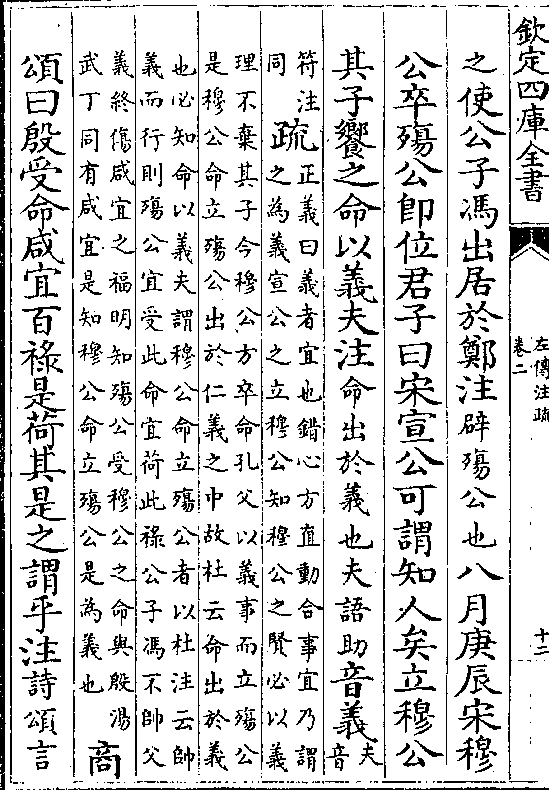 欽定四庫全書
左傳注疏
卷二
十二
之使公子馮出居於鄭注辟殤公也八月庚辰宋穆
公卒殤公即位君子曰宋宣公可謂知人矣立穆公
其子饗之命以義夫注命出於義也夫語助音義夫音
符注同疏正義曰義者宜也錯心方直動合事宜乃謂
之為義宣公之立穆公知穆公之賢必以義
理不棄其子今穆公方卒命孔父以義事而立殤公
是穆公命立殤公出於仁義之中故杜云命出於義
也必知命以義夫謂穆公命立殤公者以杜注云帥
義而行則殤公宜受此命宜荷此祿公子馮不帥父
義終傷咸宜之福明知殤公受穆公之命與殷湯
武丁同有咸宜是知穆公命立殤公是為義也商
頌曰殷受命咸宜百祿是荷其是之謂乎注詩頌言